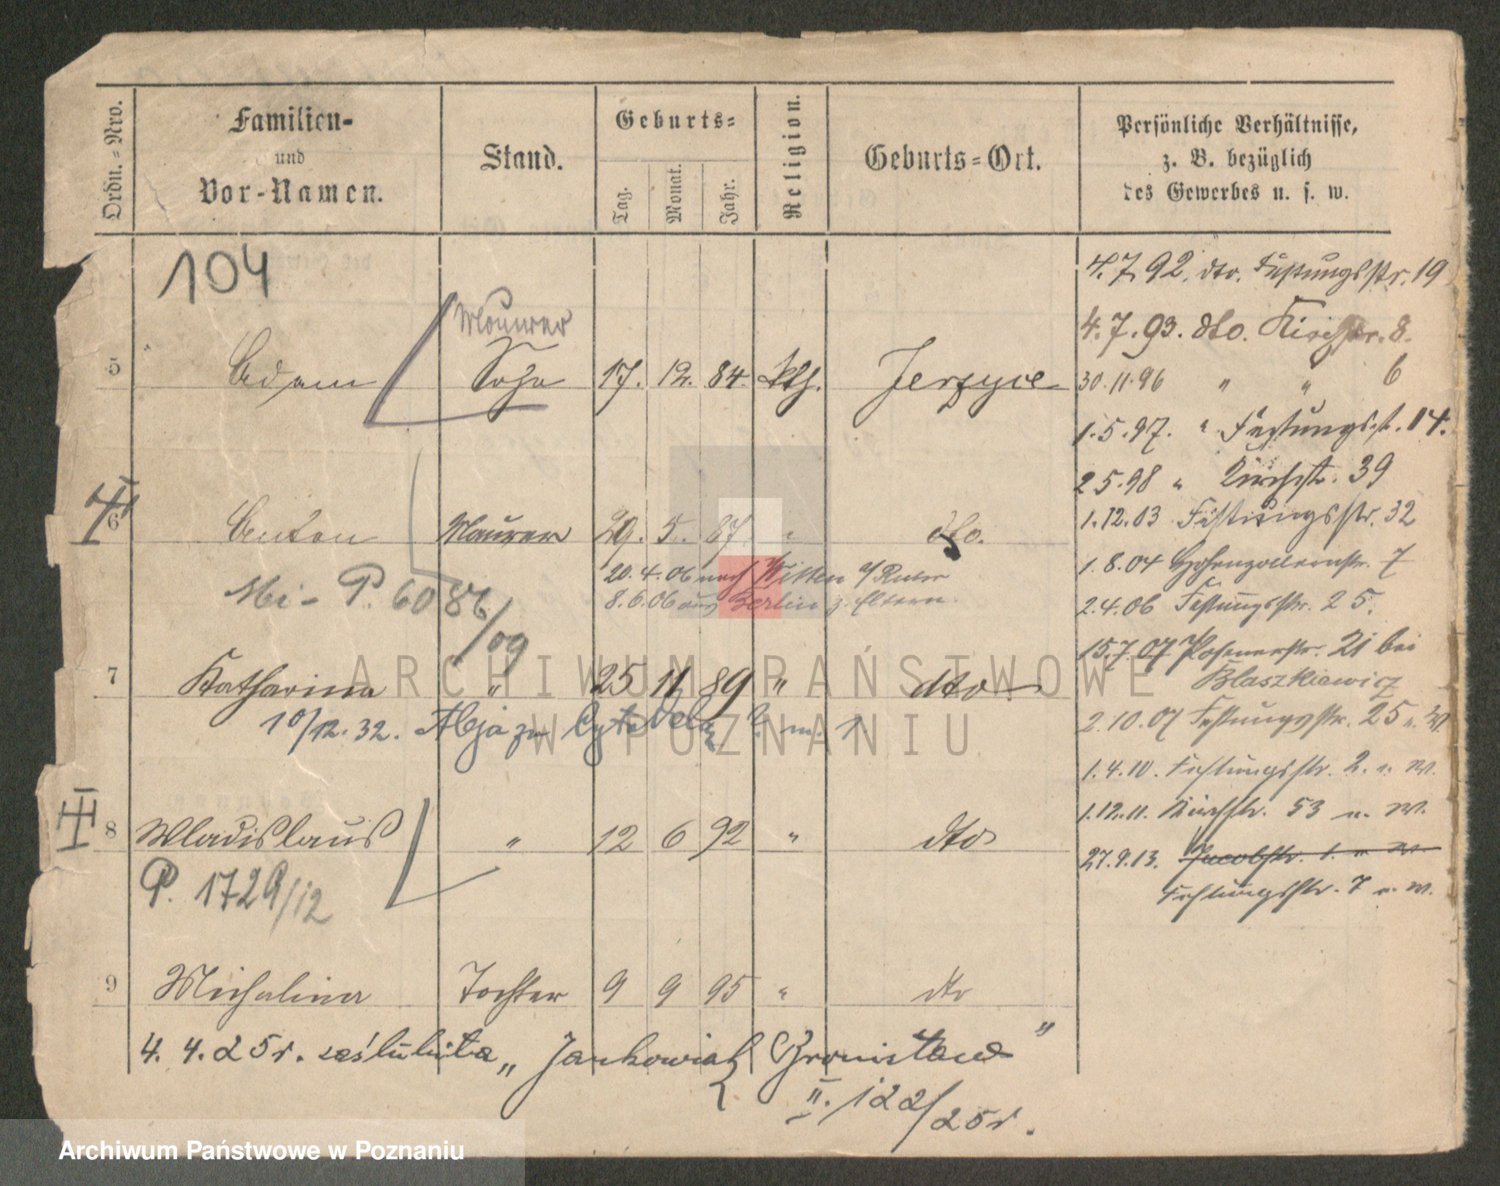 Ordn.-Nro.
Familien-
und
Vor-Namen.
Stand.
Geburts-
Tag.
Monat.
Jahr.
Religion.
Geburts-Ort.
Persönliche Verhältnisse,
z. B. bezüglich
des Gewerbes u. s. w.
104
4.7.92. dto. Festungsstr. 19
Maurer
4.7.93. dto. Kirchstr. 8.
5 Adam Sohn 17. 12. 84. kth. Jerzyce
30.11.96 " " 6
1.5.97. " Festungsst. 14.
2.5.98 " Kirchst. 39
6 Anton Maurer 29. 5. 87. " dto.
1.12.03 Festungsstr. 32
20.4.06 nach Witten a/Ruhr
1.8.04 Hohenzollernstr. 7
8.6.06 aus Berlin z. Eltern.
2.4.06 Festungsstr. 25.
P. 6086/09
15.7.07 Posenerstr. 21 bei
Blaszkiewicz
7 Katharina " 25 11 89 " dto
2.10.07 Festungsstr. 25 n. W.
10/12.32.
1.4.10. Festungsstr. 2. n. W.
1.12.11. Kirchstr. 53 n. W.
8 Wladislaus " 12 6 92 " dto
27.9.13. Jacobstr. 1. n W.
Festungsstr. 7 n. W.
P. 1729/12
9 Michalina Tochter 9 9 95 " dto
4. 4. 25 r. zaślubiła „Jankowiak Bronisław"
II. 122/25 r.
ARCHIWUM PAŃSTWOWE
W POZNANIU
Archiwum Państwowe w Poznaniu